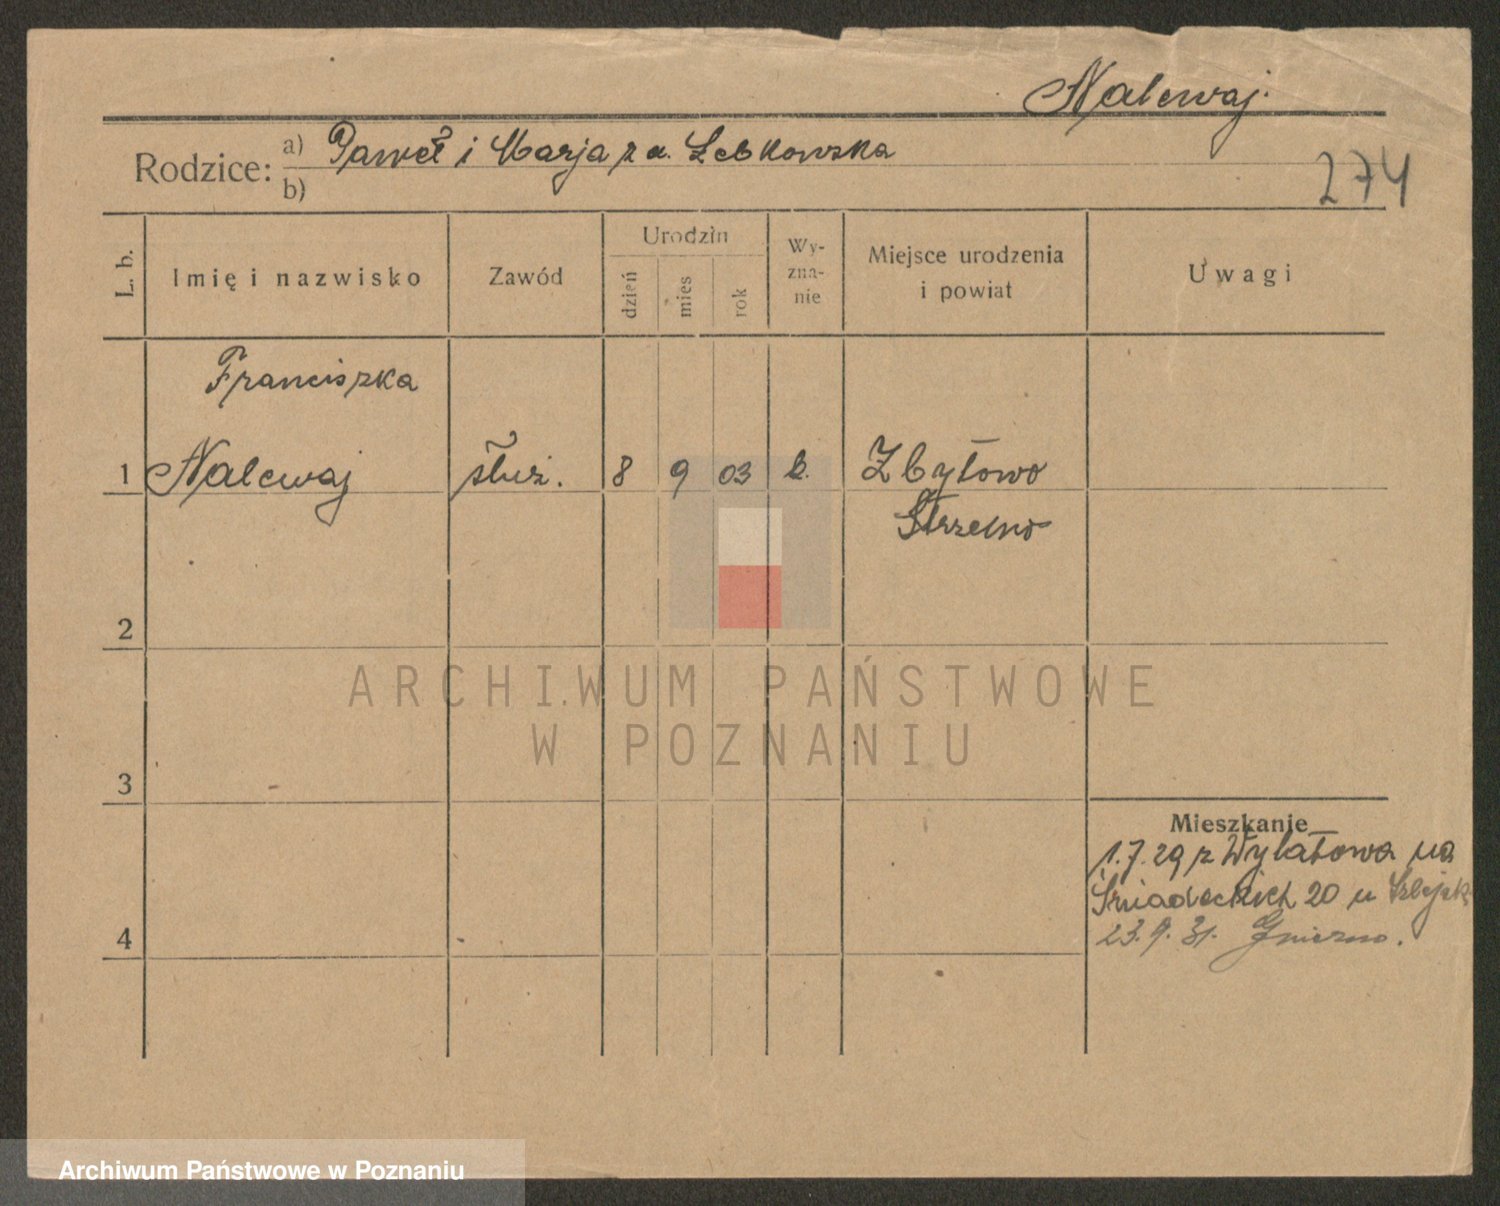 Nalewaj.
Rodzice: a) Paweł i Marja z d. Łebkowska
b)
274
L. b.
Imię i nazwisko
Zawód
Urodzin
dzień
mies
rok
Wy-
zna-
nie
Miejsce urodzenia
i powiat
Uwagi
Franciszka
1 Nalewaj służ. 8 9 03 k. Zbytowo
Strzelno
2
ARCHIWUM PAŃSTWOWE
W POZNANIU
3
Mieszkanie
1.7.29 z Wylatowa na
Śniadeckich 20 u
4
23.9.31. Gniezno.
Archiwum Państwowe w Poznaniu